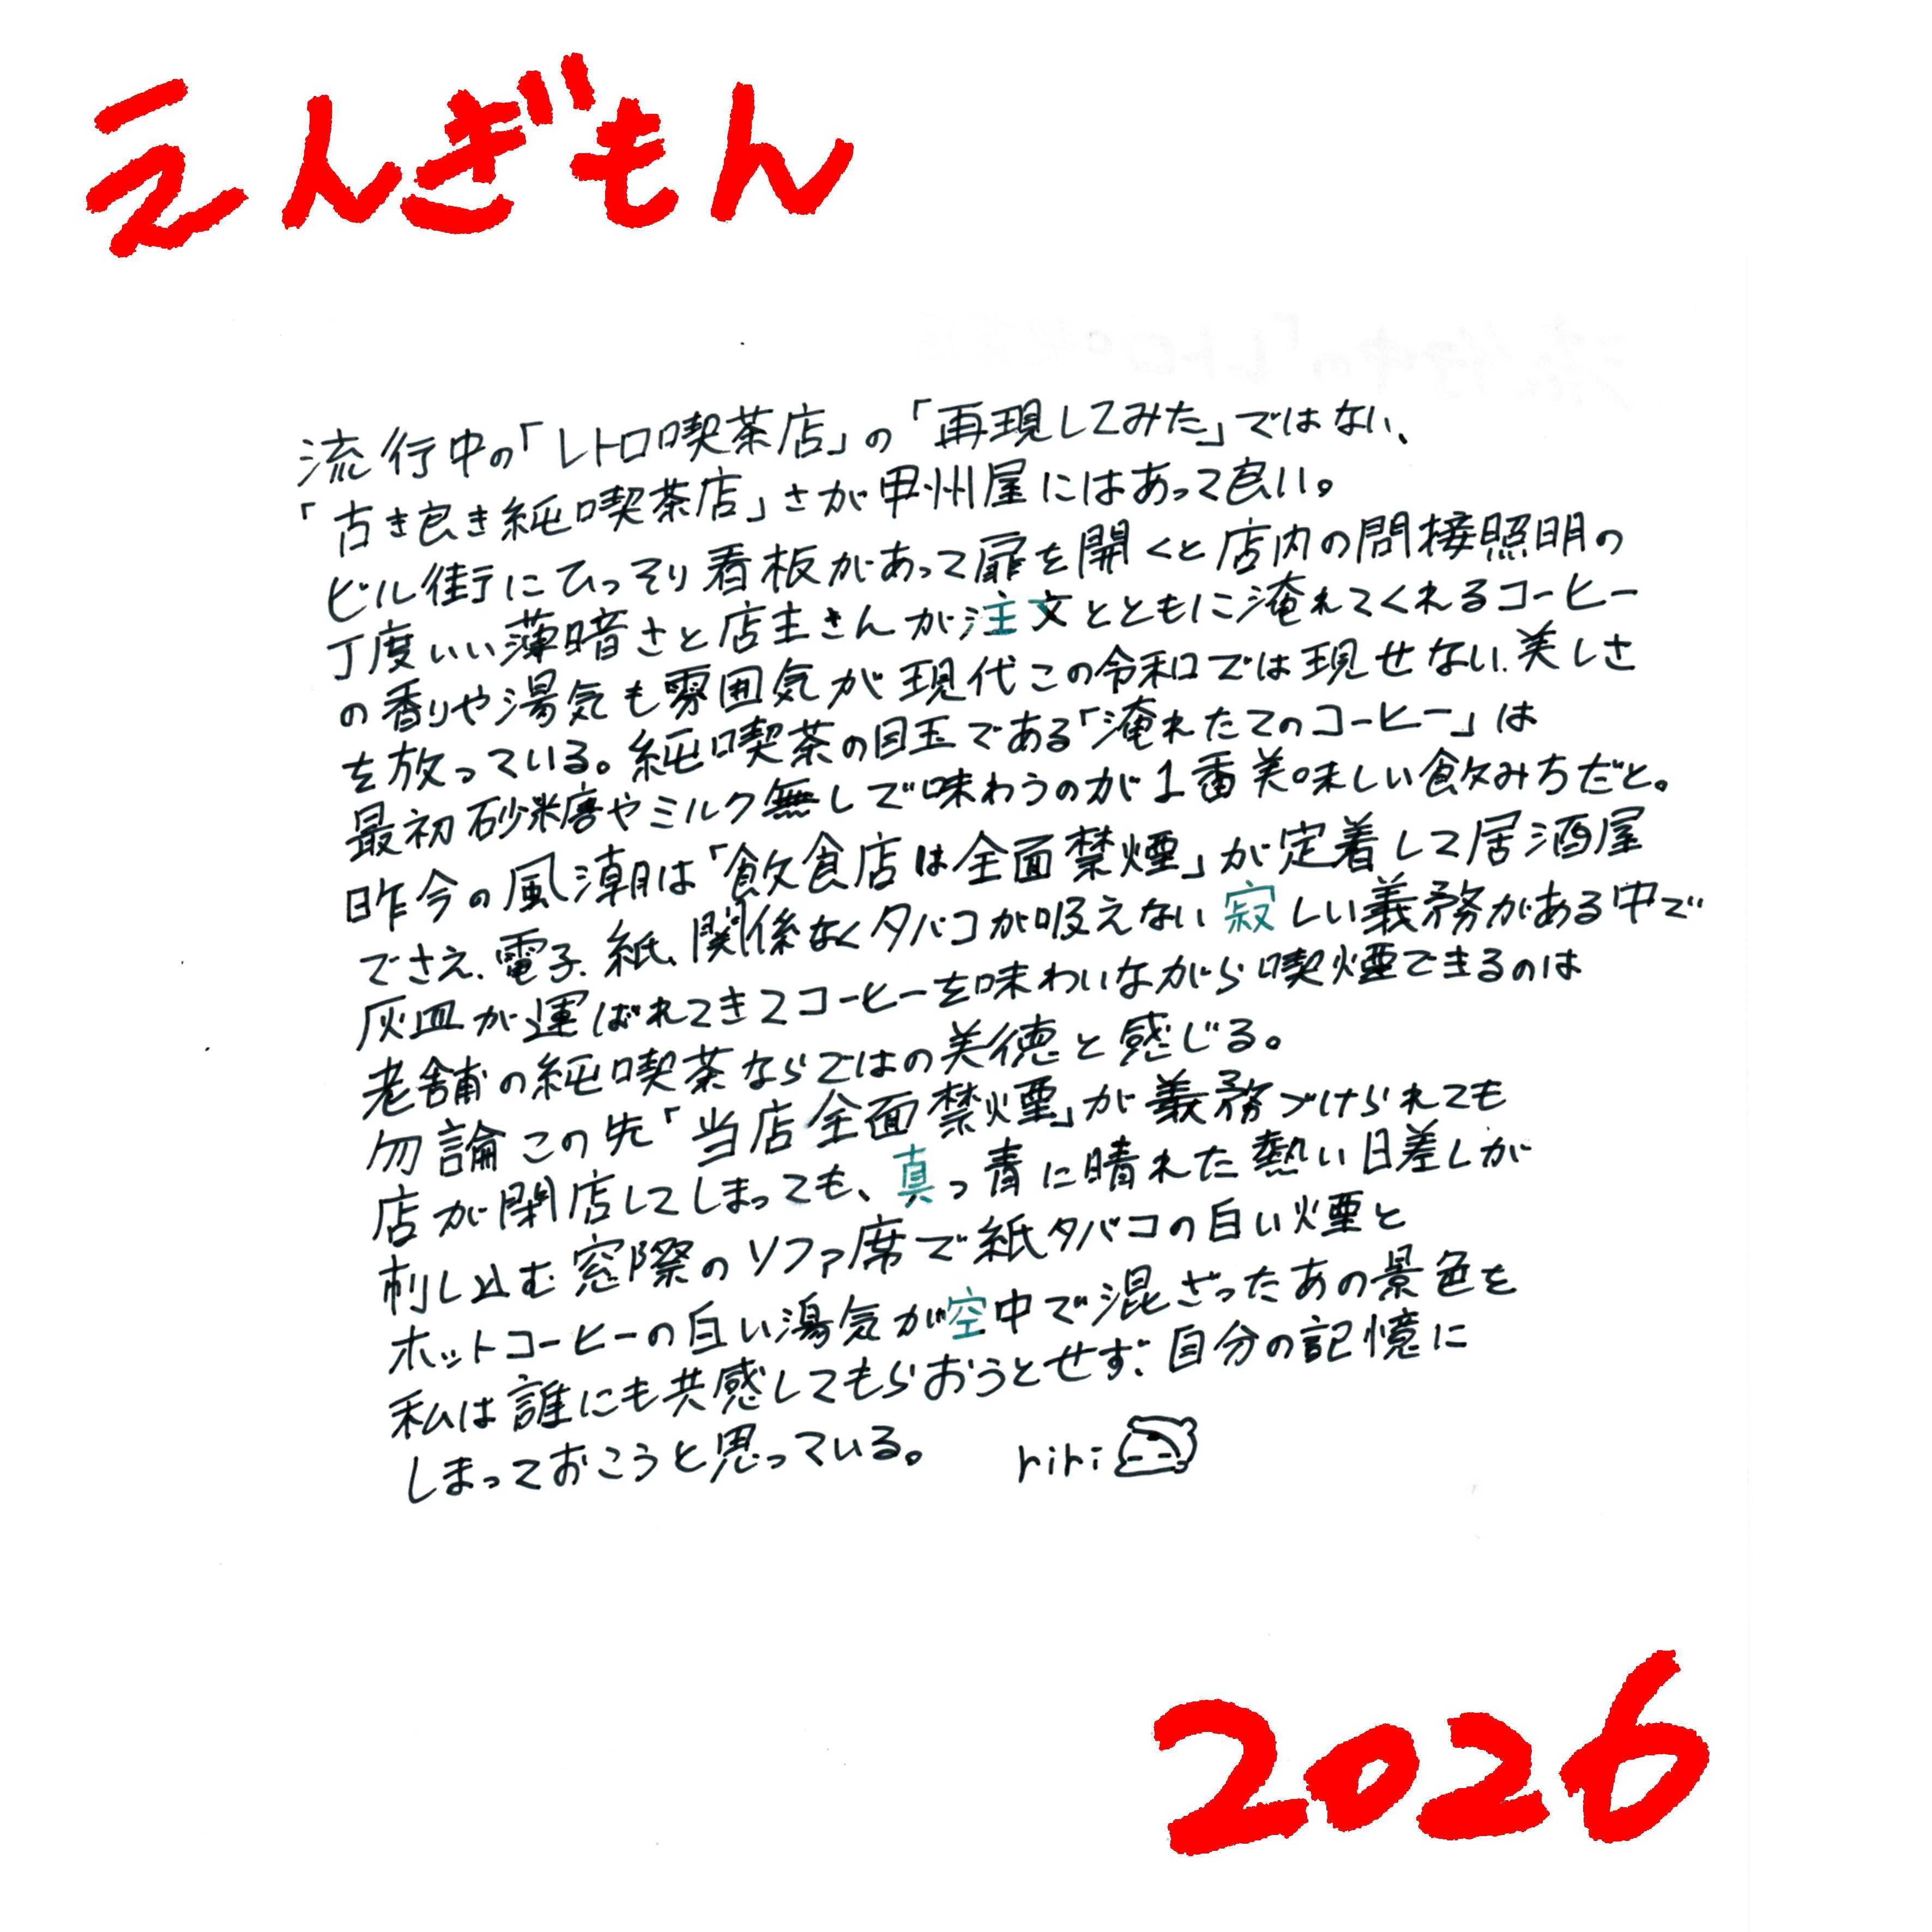 えんぎもん
流行中の「レトロ喫茶店」の「再現してみた」ではない、
「古き良き純喫茶店」さが甲州屋にはあって良い。
ビル街にひっそり看板があって扉を開くと店内の間接照明の
丁度いい薄暗さと店主さんが注文とともに淹れてくれるコーヒー
の香りや湯気も雰囲気が現代この令和では現せない、美しさ
を放っている。純喫茶の目玉である「淹れたてのコーヒー」は
最初砂糖やミルク無しで味わうのが1番美味しい飲みちだと。
昨今の風潮は「飲食店は全面禁煙」が定着して居酒屋
でさえ、電子、紙、関係なくタバコが吸えない寂しい義務がある中で
灰皿が運ばれてきてコーヒーを味わいながら喫煙できるのは
老舗の純喫茶ならではの美徳と感じる。
勿論この先「当店全面禁煙」が義務づけられても
店が閉店してしまっても、真っ青に晴れた熱い日差しが
刺し込む窓際のソファ席で紙タバコの白い煙と
ホットコーヒーの白い湯気が空中で混ざったあの景色を
私は誰にも共感してもらおうとせず、自分の記憶に
しまっておこうと思っている。 riri
2026